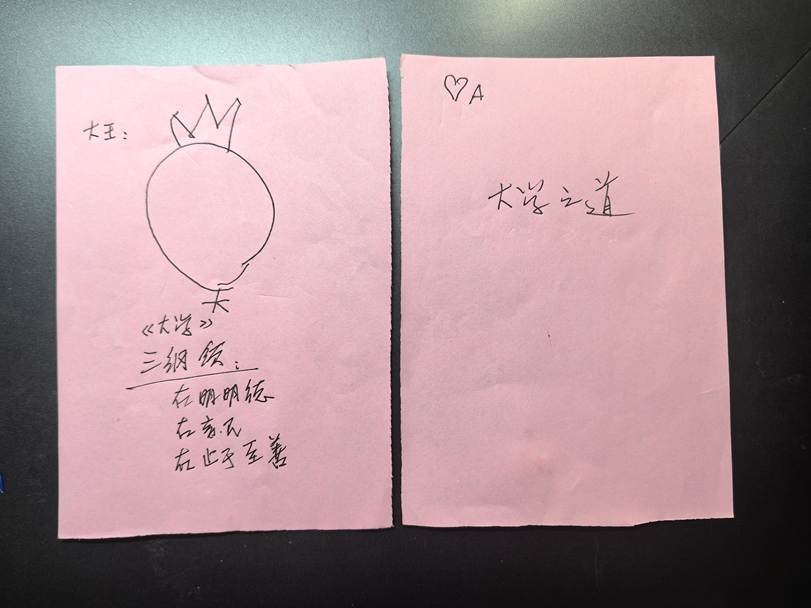 大王:
大
《大学》
三纲领:
在明明德
在亲民
在止于至善
♡A
大学之道